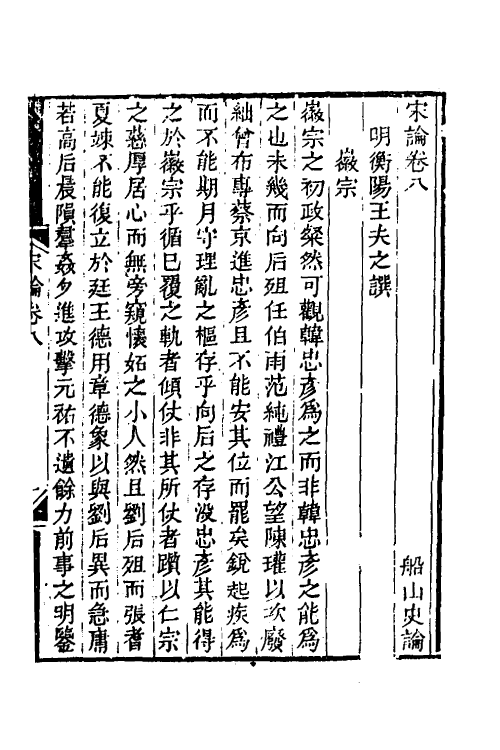 宋論卷八
船山史論
明衡陽王夫之譔
徽宗
徽宗之初政粲然可觀韓忠彥爲之而非韓忠彥之能爲
之也未幾而向后殂任伯雨范純禮江公望陳瓘以次廢
絀曾布專蔡京進忠彥且不能安其位而罷矣銳起疾爲
而不能期月守理亂之樞存乎向后之存沒忠彥其能得
之於徽宗乎循已覆之軌者傾仗非其所仗者躓以仁宗
之慈厚居心而無旁窺懷妬之小人然且劉后殂而張耆
夏竦不能復立於廷王德用章德象以與劉后異而急庸
若高后晨隕羣姦夕進攻擊元祐不遺餘力前事之明鑒
宋論卷八